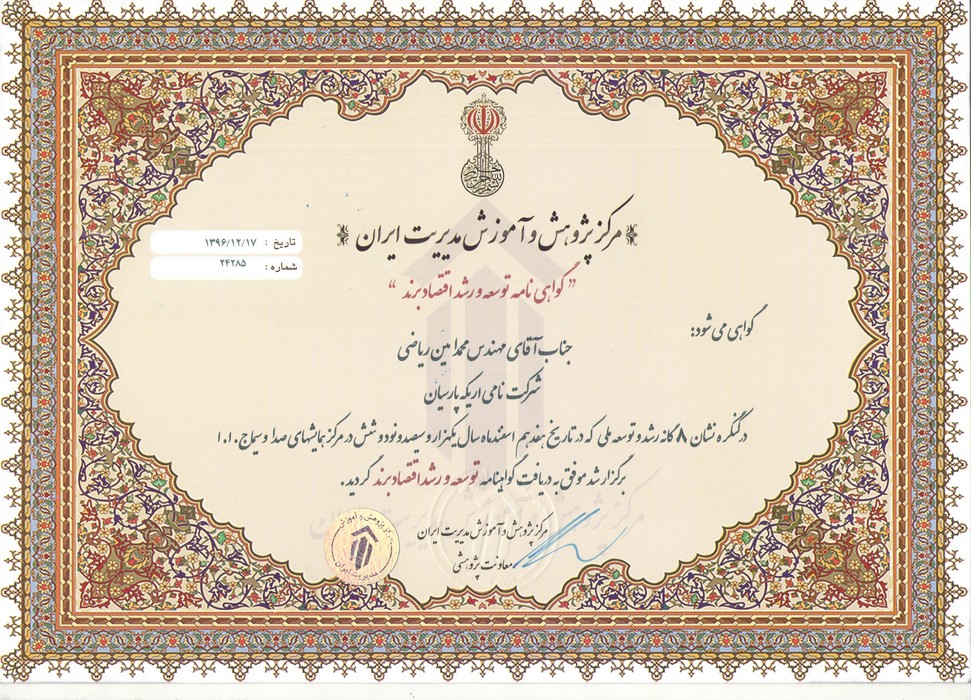 مرکز پژوهش و آموزش مدیریت ایران
تاریخ : ۱۳۹۶/۱۲/۱۷
شماره : ۲۴۲۸۵
" گواهی نامه توسعه و رشد اقتصاد برند "
گواهی می شود:
جناب آقای مهندس محمد امین ریاضی
شرکت نامی اریکه پارسیان
در کنگره نشان ۸ گانه رشد و توسعه ملی که در تاریخ هفدهم اسفند ماه سال یکهزار و سیصد و نود و شش در مرکز همایشهای صدا و سیما ج.ا.ا
برگزار شد موفق به دریافت گواهینامه توسعه و رشد اقتصاد برند گردید.
مرکز پژوهش و آموزش مدیریت ایران
معاونت پژوهشی
مرکز پژوهش و آموزش
مدیریت ایران